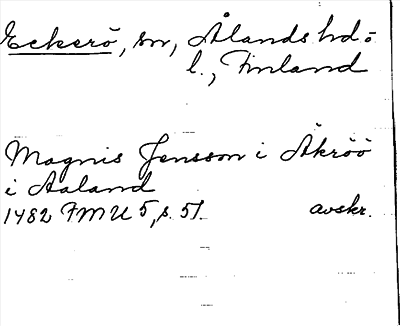 Eckerö, sn, Ålands hd:
l., Finland
Magnis Jensson i Åkröö
i Aaland
1482 FMU 5, s. 51 avskr.